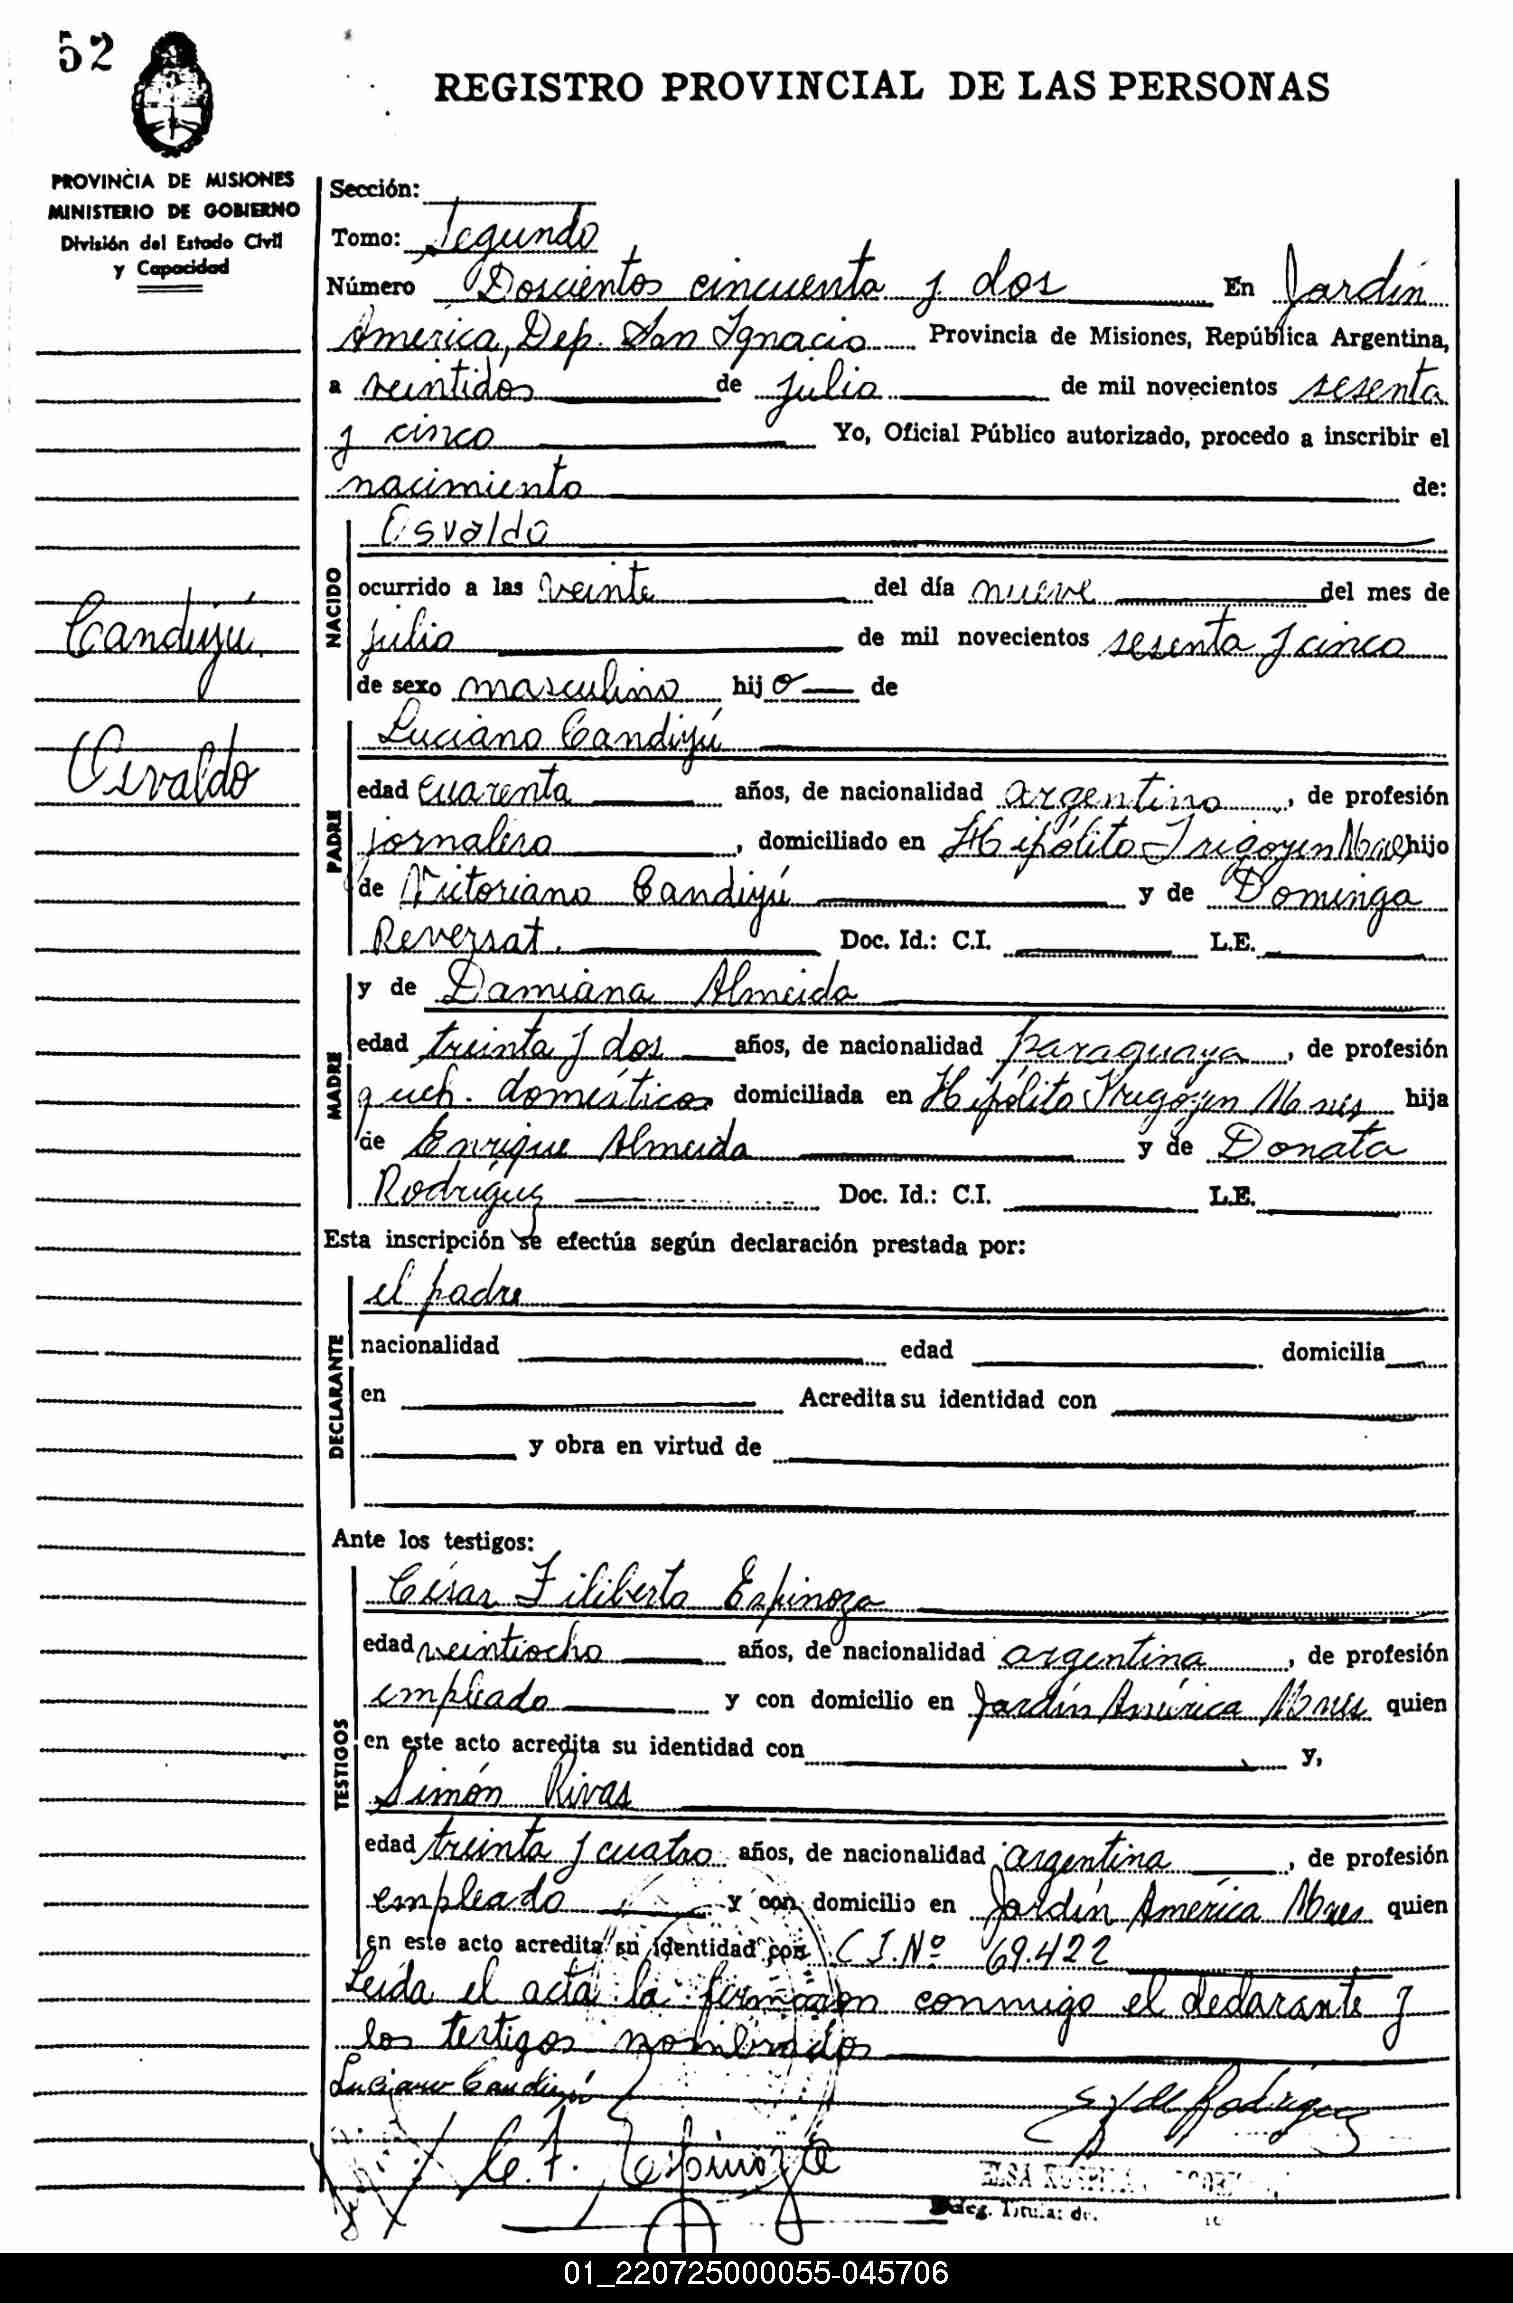 52
REGISTRO PROVINCIAL DE LAS PERSONAS
PROVINCIA DE MISIONES
MINISTERIO DE GOBIERNO
División del Estado Civil
y Capacidad
Sección:
Tomo: Segundo
Número Doscientos cincuenta y dos En Jardín
América, Dep. San Ignacio Provincia de Misiones, República Argentina,
a veintidos de julio de mil novecientos sesenta
y cinco Yo, Oficial Público autorizado, procedo a inscribir el
nacimiento de:
Candiyú
Osvaldo
NACIDO
Osvaldo
ocurrido a las veinte del día nueve del mes de
julio de mil novecientos sesenta y cinco
de sexo masculino hijo de
PADRE
Luciano Candiyú
edad cuarenta años, de nacionalidad argentino, de profesión
jornalero, domiciliado en Hipólito Irigoyen hijo
de Victoriano Candiyú y de Dominga
Reversat. Doc. Id.: C.I. L.E.
MADRE
y de Damiana Almeida
edad treinta y dos años, de nacionalidad paraguaya, de profesión
queh. domésticos domiciliada en Hipólito Irigoyen Mnes hija
de Enrique Almeida y de Donata
Rodríguez Doc. Id.: C.I. L.E.
Esta inscripción se efectúa según declaración prestada por:
DECLARANTE
el padre
nacionalidad edad domicilia
en Acredita su identidad con
y obra en virtud de
Ante los testigos:
TESTIGOS
César Filiberto Espinoza
edad veintiocho años, de nacionalidad argentina, de profesión
empleado y con domicilio en Jardín América Mnes quien
en este acto acredita su identidad con y,
Simón Rivas
edad treinta y cuatro años, de nacionalidad argentina, de profesión
empleado y con domicilio en Jardín América Mnes quien
en este acto acredita su identidad con C.I. Nº 69.422
Leida el acta la firmaron conmigo el declarante y
los testigos nombrados
Luciano Candiyú
de Rodríguez
C. F. Espinoza
ELSA
Deleg. Titular de
01_220725000055-045706